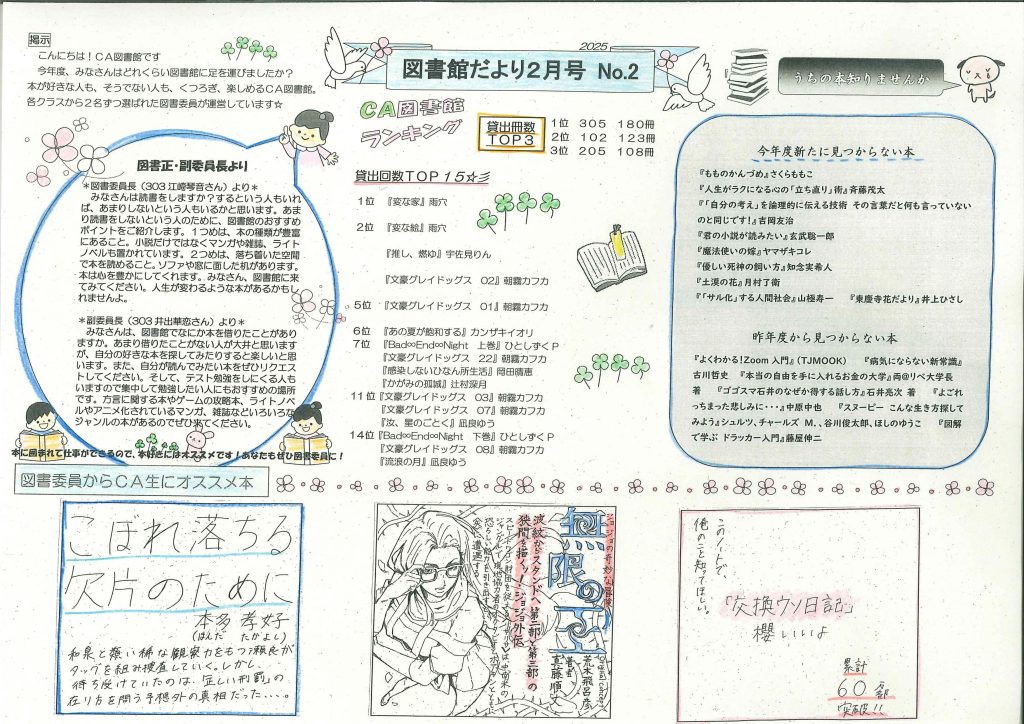 掲示
こんにちは！ＣＡ図書館です
今年度、みなさんはどれくらい図書館に足を運びましたか？
本が好きな人も、そうでない人も、くつろぎ、楽しめるＣＡ図書館。
各クラスから２名ずつ選ばれた図書委員が運営しています☆
2025
図書館だより２月号 No.2
うちの本知りませんか
図書正・副委員長より
＊図書委員長（303 江崎琴音さん）より＊
みなさんは読書をしますか？するという人もいれ
ば、あまりしないという人もいるかと思います。あま
り読書をしないという人のために、図書館のおすすめ
ポイントをご紹介します。１つめは、本の種類が豊富
にあること。小説だけではなくマンガや雑誌、ライト
ノベルも置かれています。２つめは、落ち着いた空間
で本を読めること。ソファや窓に面した机があります。
本は心を豊かにしてくれます。みなさん、図書館に来
てみてください。人生が変わるような本があるかもし
れませんよ。
＊副委員長（303 井出華恋さん）より＊
みなさんは、図書館でなにか本を借りたことがあり
ますか。あまり借りたことがない人が大井と思います
が、自分の好きな本を探してみたりすると楽しいと思
います。また、自分が読んでみたい本をぜひリクエス
トしてください。そして、テスト勉強をしにくる人も
いますので集中して勉強したい人にもおすすめの場所
です。方言に関する本やゲームの攻略本、ライトノベ
ルやアニメ化されているマンガ、雑誌などいろいろな
ジャンルの本があるのでぜひ来てください。
本に囲まれて仕事ができるので、本好きにはオススメです！あなたもぜひ図書委員に！
ＣＡ図書館
ランキング
貸出冊数
ＴＯＰ３
1位 305 180冊
2位 102 123冊
3位 205 108冊
貸出回数ＴＯＰ１５☆彡
1位 『変な家』雨穴
2位 『変な絵』雨穴
『推し、燃ゆ』宇佐見りん
『文豪グレイドッグス 02』朝霧カフカ
5位 『文豪グレイドッグス 01』朝霧カフカ
6位 『あの夏が飽和する』カンザキイオリ
7位 『Bad∞End∞Night 上巻』ひとしずくＰ
『文豪グレイドッグス 22』朝霧カフカ
『感染しないひなん所生活』岡田晴恵
『かがみの孤城』辻村深月
11位 『文豪グレイドッグス 03』朝霧カフカ
『文豪グレイドッグス 07』朝霧カフカ
『汝、星のごとく』凪良ゆう
14位 『Bad∞End∞Night 下巻』ひとしずくＰ
『文豪グレイドッグス 08』朝霧カフカ
『流浪の月』凪良ゆう
今年度新たに見つからない本
『もものかんづめ』さくらももこ
『人生がラクになる心の「立ち直り」術』斉藤茂太
『「自分の考え」を論理的に伝える技術 その言葉だと何も言っていない
のと同じです！』吉岡友治
『君の小説が読みたい』玄武聡一郎
『魔法使いの嫁』ヤマザキコレ
『優しい死神の飼い方』知念実希人
『土漠の花』月村了衛
『「サル化」する人間社会』山極寿一 『東慶寺花だより』井上ひさし
昨年度から見つからない本
『よくわかる！Zoom 入門』（TJMOOK） 『病気にならない新常識』
古川哲史 『本当の自由を手に入れるお金の大学』両＠リベ大学長
著 『ゴゴスマ石井のなぜか得する話し方』石井亮次 著 『よごれ
っちまった悲しみに・・・』中原中也 『スヌーピー こんな生き方探して
みよう』シュルツ、チャールズ Ｍ．、谷川俊太郎、ほしのゆうこ 『図解
で学ぶ ドラッカー入門』藤屋伸二
図書委員からＣＡ生にオススメ本
こぼれ落ちる
欠片のために
本多 孝好
(ほんだ たかよし)
和泉と類い稀な観察力をもつ瀬良が
タッグを組み捜査していく。しかし、
待ち受けていたのは、「正しい刑罰」の
在り方を問う予想外の真相だった・・・。
ジョジョの奇妙な冒険
無限の王
original concept
荒木飛呂彦
著者
真藤順丈
波紋からスタンドへ 第二部と第三部の
狭間を描くッ！ジョジョ外伝
このノートで、
俺のこと知ってほしい。
「交換ウソ日記」
櫻いいよ
累計
60万部
突破!!